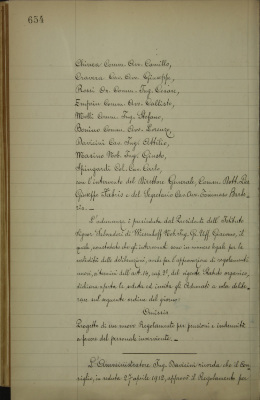 654
Chiesa Comm. Avv. Camillo,
Cravera Cav. Avv. Giuseppe,
Rossi Gr. Comm. Ing. Cesare,
Emprin Comm. Avv. Callisto,
Molli Comm. Ing. Stefano,
Bonino Comm. Avv. Lorenzo
Davicini Cav. Ing. Attilio,
Masino Nob. Ing. Giusto,
Col. Cav. Carlo,
con l'intervento del Direttore Generale, Comm. Dott.
Giuseppe e del Segretario Cav. Avv. Tommaso
L'adunanza è presieduta dal Presidente dell'Istituto
Signor Salvadori di Wiesenhoff Nob. Ing. Gr. Uff. Giovanni, il
quale, constatato che gli intervenuti sono in numero legale per la
validità delle deliberazioni, anche per l'approvazione di regolamenti
a termini dell'art. 10, del vigente Statuto organico,
dichiara aperta la seduta ed invita gli Adunati a voler delibe-
rare sul seguente ordine del giorno:
Progetto di un nuovo Regolamento per pensioni e indennità
a favore del personale
L'Amministratore Ing. Davicini ricorda che il Con-
siglio, in seduta 27 aprile 1912, approvò il Regolamento per